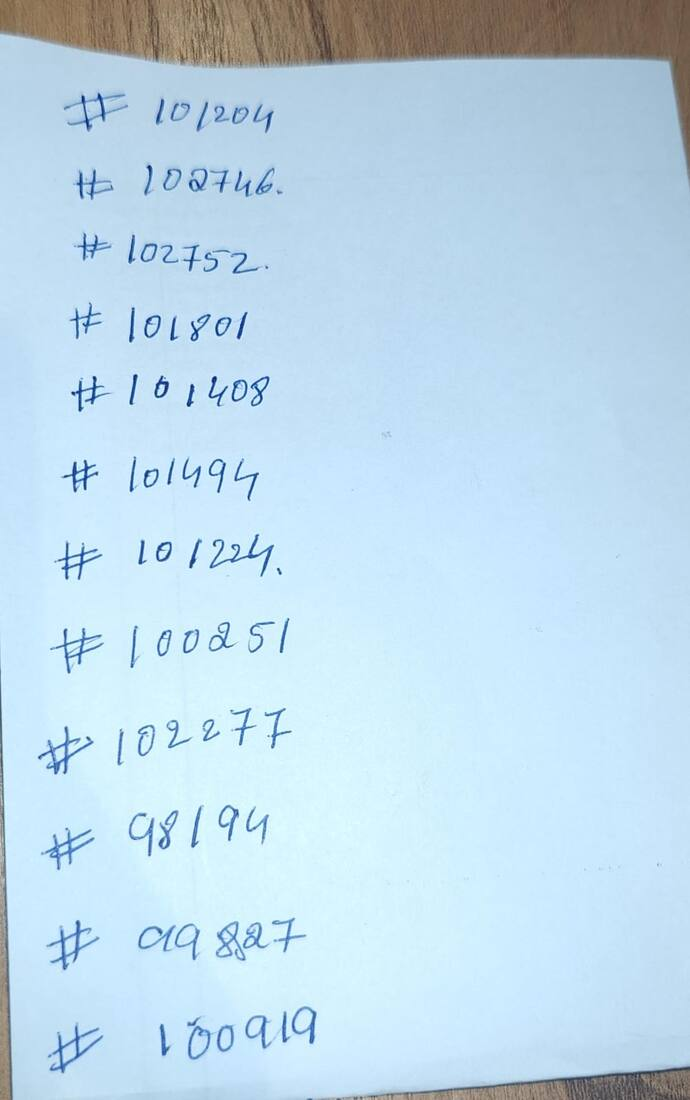 # 101204
# 102746.
# 102752.
# 101801
# 101408
# 101494
# 101224.
# 100251
# 102277
# 98194
# 99827
# 100919